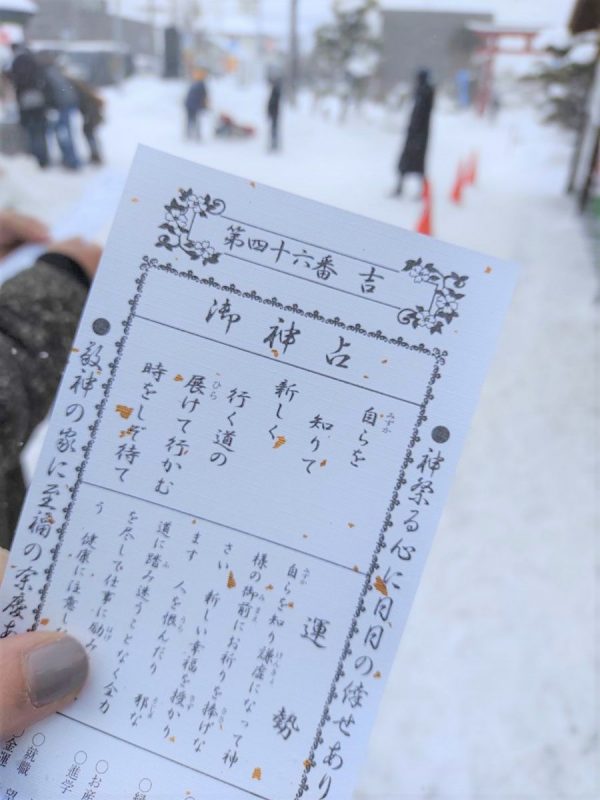 第四十六番 吉
御神占
●神祭る心に日日の倖せあり
自らを
知りて
新しく
行く道の
展けて行かむ
時をしぞ待て
運勢
自らを知り謙虚になって神
様の御前にお祈りを捧げな
さい 新しい幸福を授かり
ます 人を恨んだり 邪な
道に踏み迷うことなく全力
を尽して仕事に励み
う 健康に注意し
●敬神の家に至福の余慶あ
○お産
○進学
○就職
金運